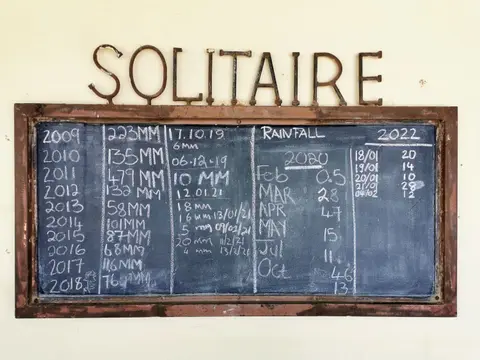 SOLITAIRE
2009 223MM
2010 135MM
2011 479MM
2012 133 MM
2013 58MM
2014 101MM
2015 87MM
2016 68MM
2017 116MM
2018 76MM
17.10.19
6mm
06.12.19
10 MM
12.01.21
18 mm
16 mm 13/01/21
5 mm 09/02/21
20 mm 11/2/21
4 mm 13/2/21
RAINFALL
2020
Feb 0.5
MAR 28
APR 47
MAY 15
Jul 11
Oct 46
13
2022
18/01 20
19/01 14
20/01 10
21/01 28
04/02 12